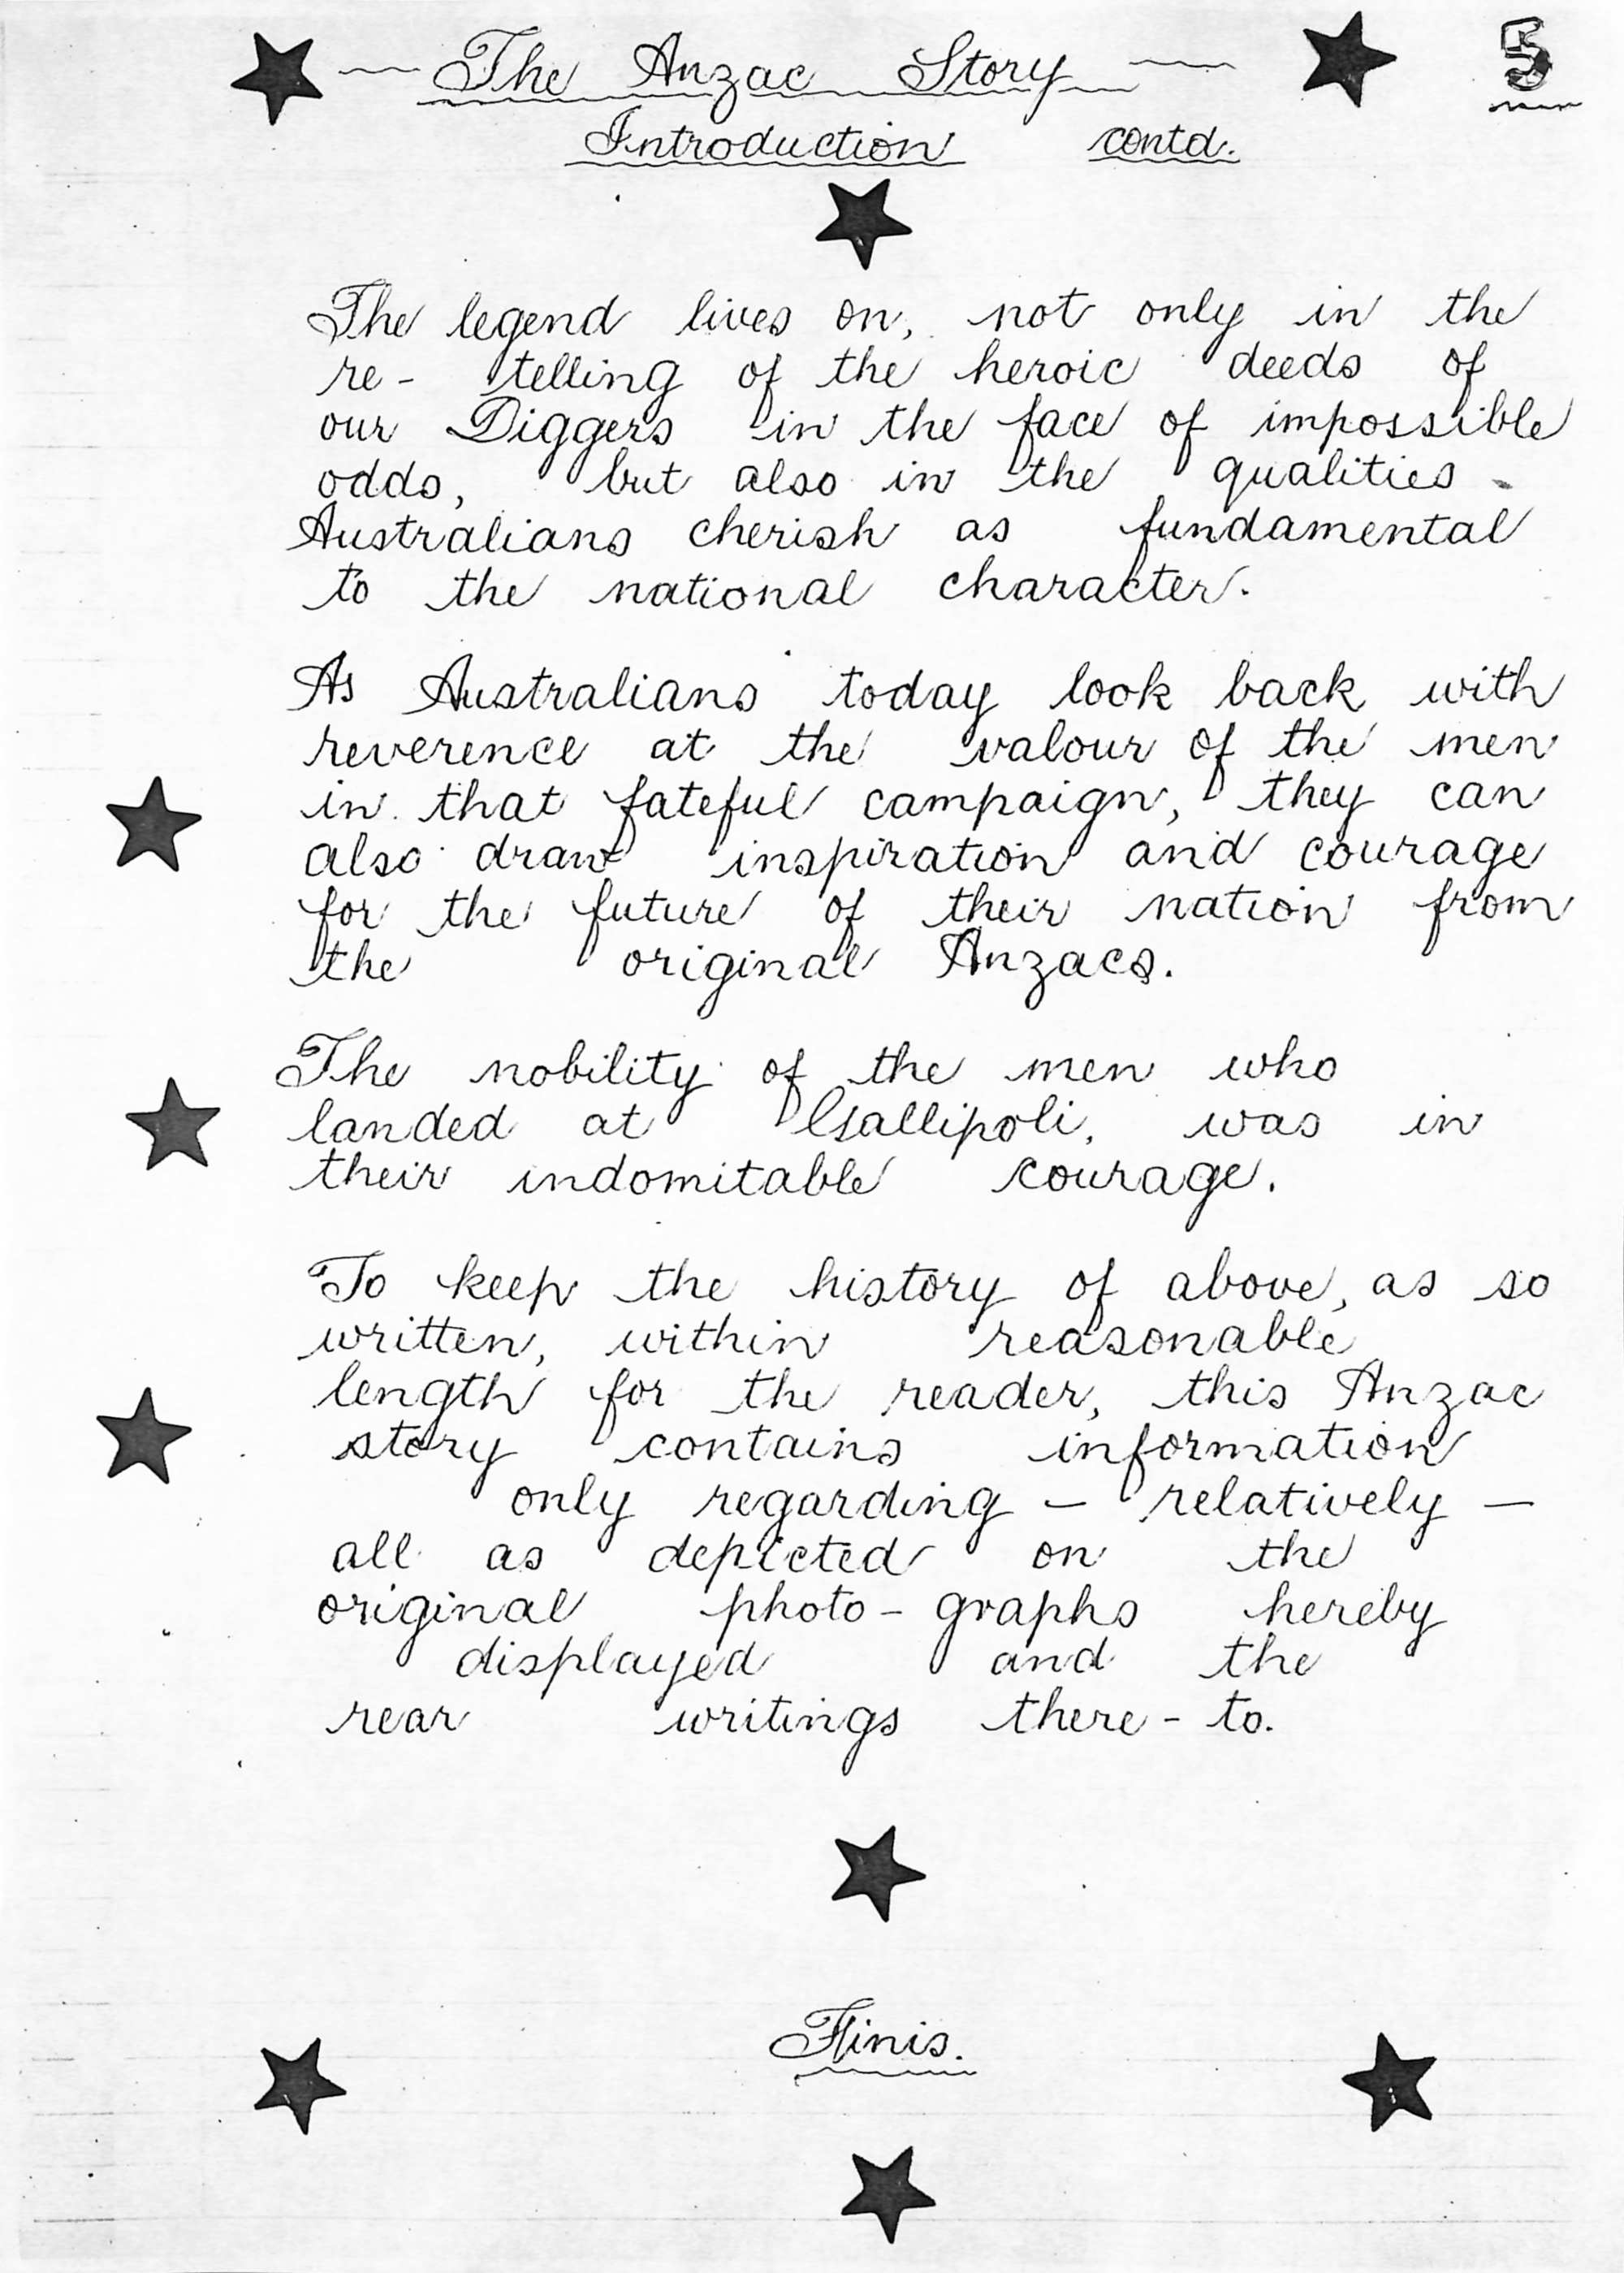 — The Anzac Story — 5
Introduction contd.
The legend lives on, not only in the
re- telling of the heroic deeds of
our Diggers in the face of impossible
odds, but also in the qualities
Australians cherish as fundamental
to the national character.
As Australians today look back with
reverence at the valour of the men
in that fateful campaign, they can
also draw inspiration and courage
for the future of their nation from
the original Anzacs.
The nobility of the men who
landed at Gallipoli, was in
their indomitable courage.
To keep the history of above, as so
written, within reasonable
length for the reader, this Anzac
story contains information
only regarding — relatively —
all as depicted on the
original photo- graphs hereby
displayed and the
rear writings there- to.
Finis.